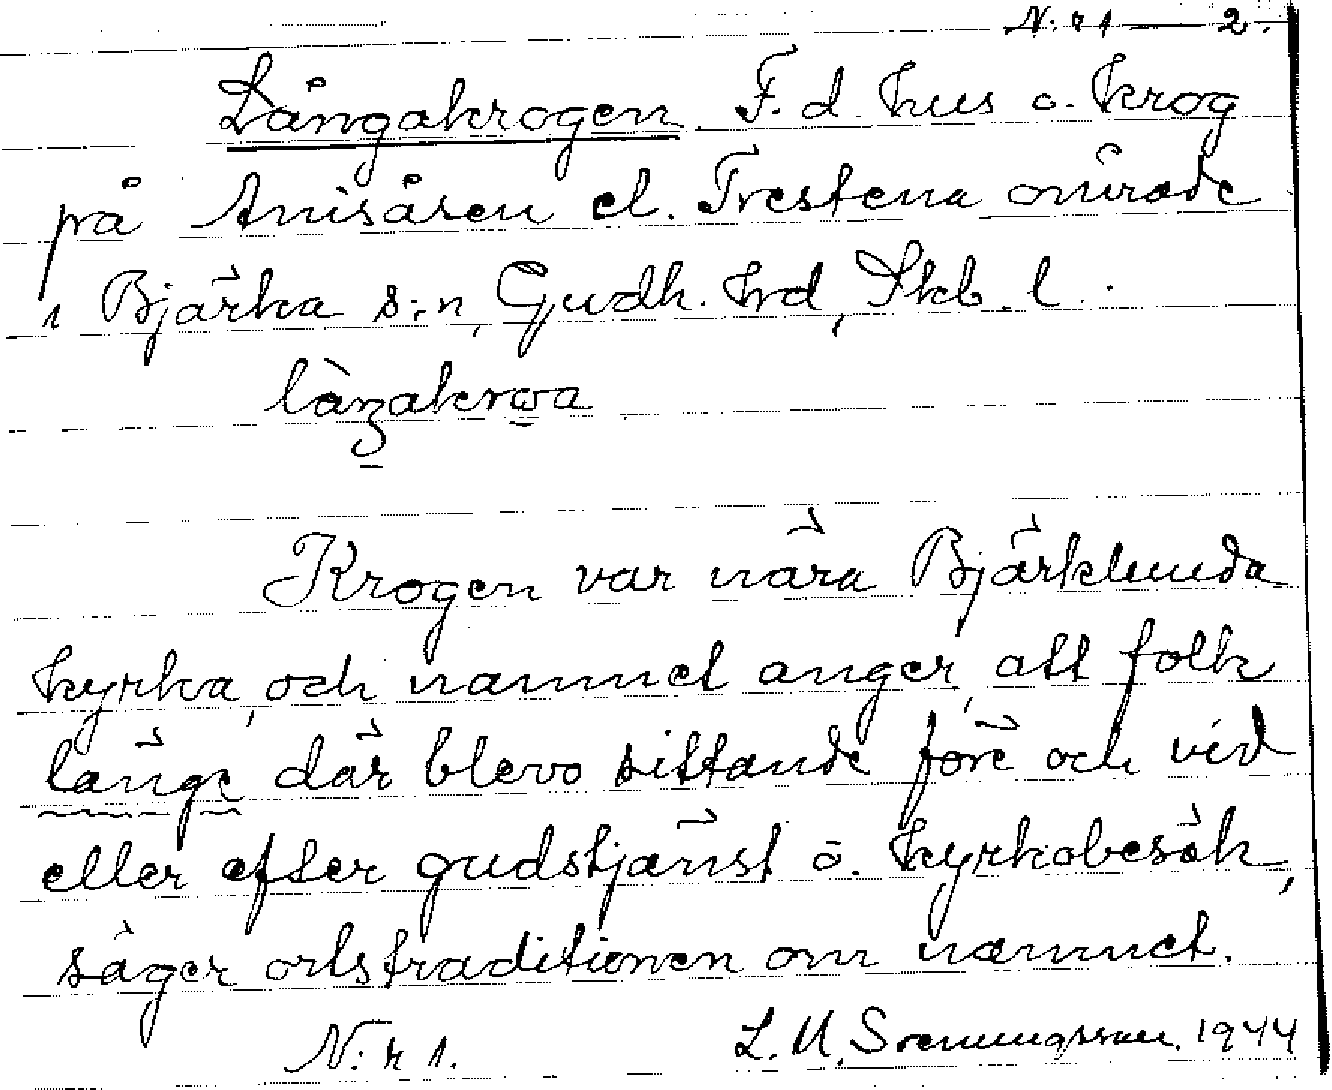 N:r 1 — 2.
Långakrogen. F. d. hus o. krog
på Anisåsen el. Trestena område
i Bjärka s:n, Gudh. hrd, Skb. l.
Krogen var nära Bjärklunda
kyrka, och namnet anger, att folk
länge där blevo sittande före och vid
eller efter gudstjänst o. kyrkobesök,
säger ortstraditionen om namnet.
N:r 1. L. M. Svenungsson 1944